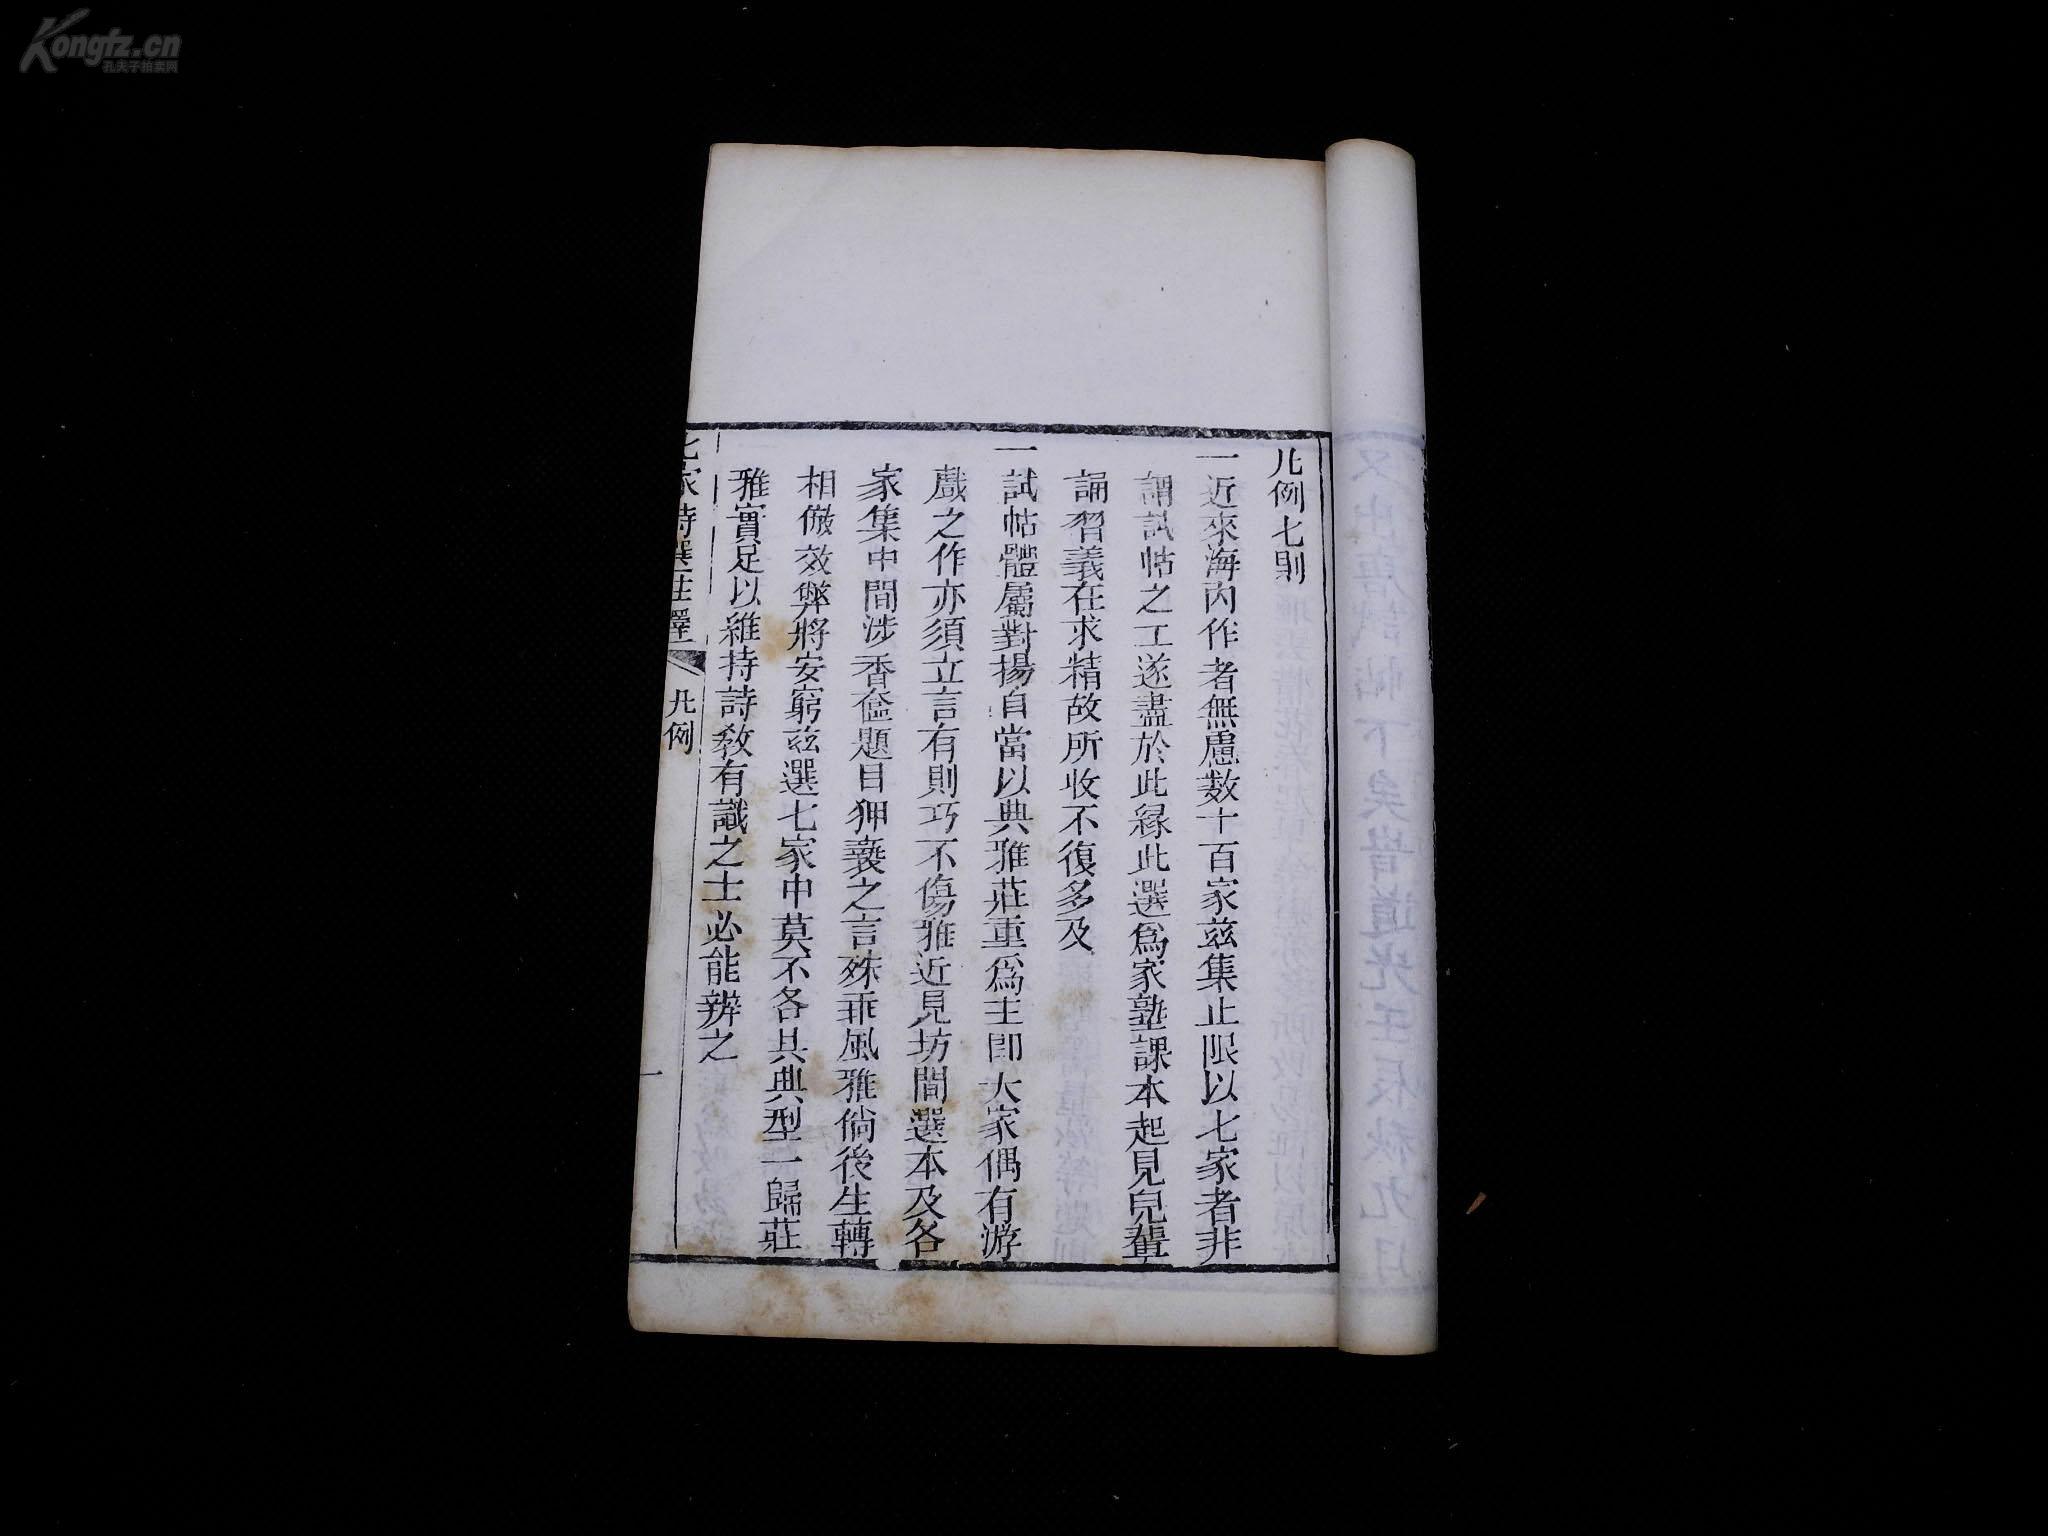 Kongfz.cn
孔夫子拍卖网
凡例七則
一近來海內作者無慮數十百家茲集止限以七家者非
謂試帖之工遂盡於此緣此選爲家塾課本起見兒輩
誦習義在求精故所收不復多及
一試帖體屬對揚自當以典雅莊重爲主卽大家偶有游
戲之作亦須立言有則巧不傷雅近見坊間選本及各
家集中間涉香奩題目狎褻之言殊乖風雅倘後生轉
相倣效弊將安窮茲選七家中莫不各具典型一歸莊
雅實足以維持詩教有識之士必能辨之
七家詩選註釋
凡例
一